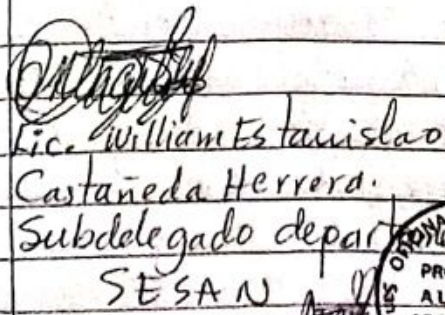 Lic. William Estanislao
Castañeda Herrera.
Subdelegado depart
SESAN
PR
AL